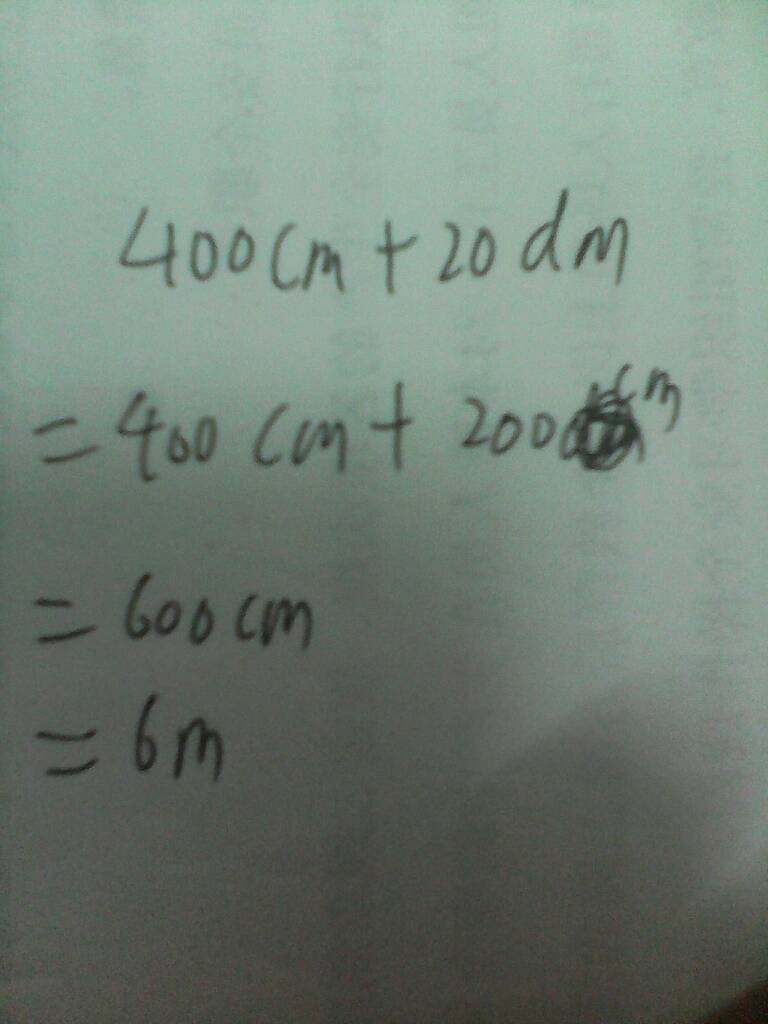 400cm+20dm
=400cm+200cm
=600cm
=6m